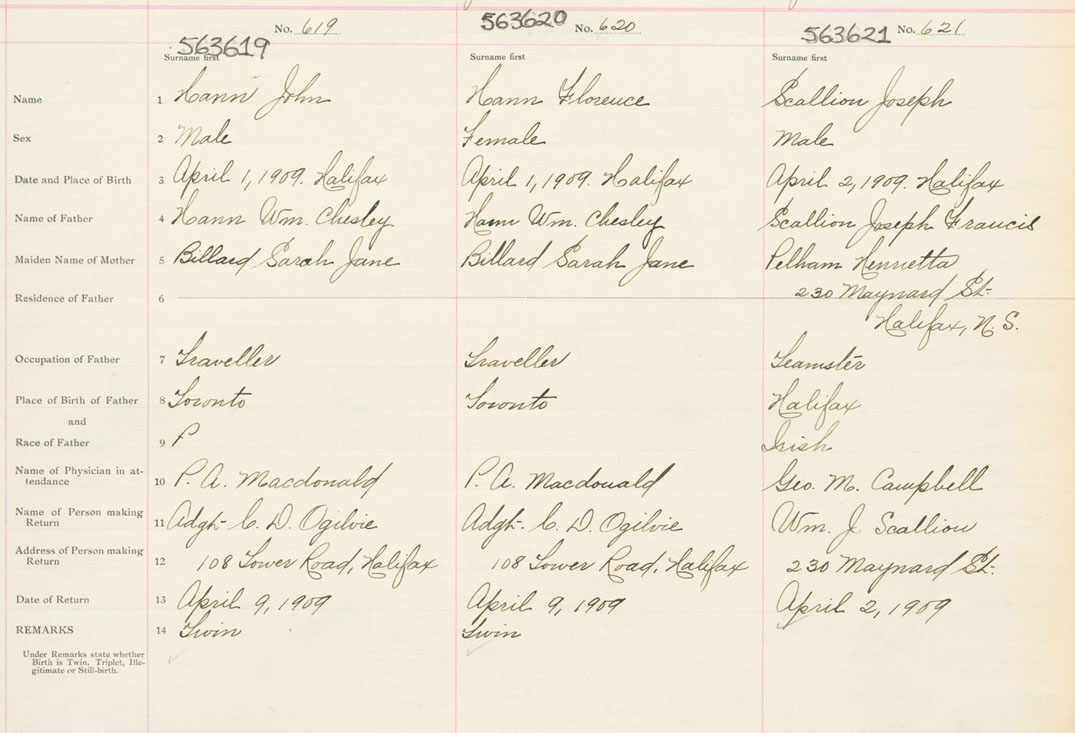 563619 No. 619 563620 No. 620 563621 No. 621
Surname first Surname first Surname first
Name 1 Hann John Hann Florence Scallion Joseph
Sex 2 Male Female Male
Date and Place of Birth 3 April 1, 1909. Halifax April 1, 1909. Halifax April 2, 1909. Halifax
Name of Father 4 Hann Wm. Chesley Hann Wm. Chesley Scallion Joseph Francis
Maiden Name of Mother 5 Billard Sarah Jane Billard Sarah Jane Pelham Henrietta
Residence of Father 6 230 Maynard St.
Halifax, N.S.
Occupation of Father 7 Traveller Traveller Teamster
Place of Birth of Father 8 Toronto Toronto Halifax
and
Race of Father 9 Irish
Name of Physician in at-
tendance 10 P. A. Macdonald P. A. Macdonald Geo. M. Campbell
Name of Person making
Return 11 Adgt. C. D. Ogilvie Adgt. C. D. Ogilvie Wm. J. Scallion
Address of Person making
Return 12 108 Tower Road, Halifax 108 Tower Road, Halifax 230 Maynard St.
Date of Return 13 April 9, 1909 April 9, 1909 April 2, 1909
REMARKS 14 Twin Twin
Under Remarks state whether
Birth is Twin, Triplet, Ille-
gitimate or Still-birth.